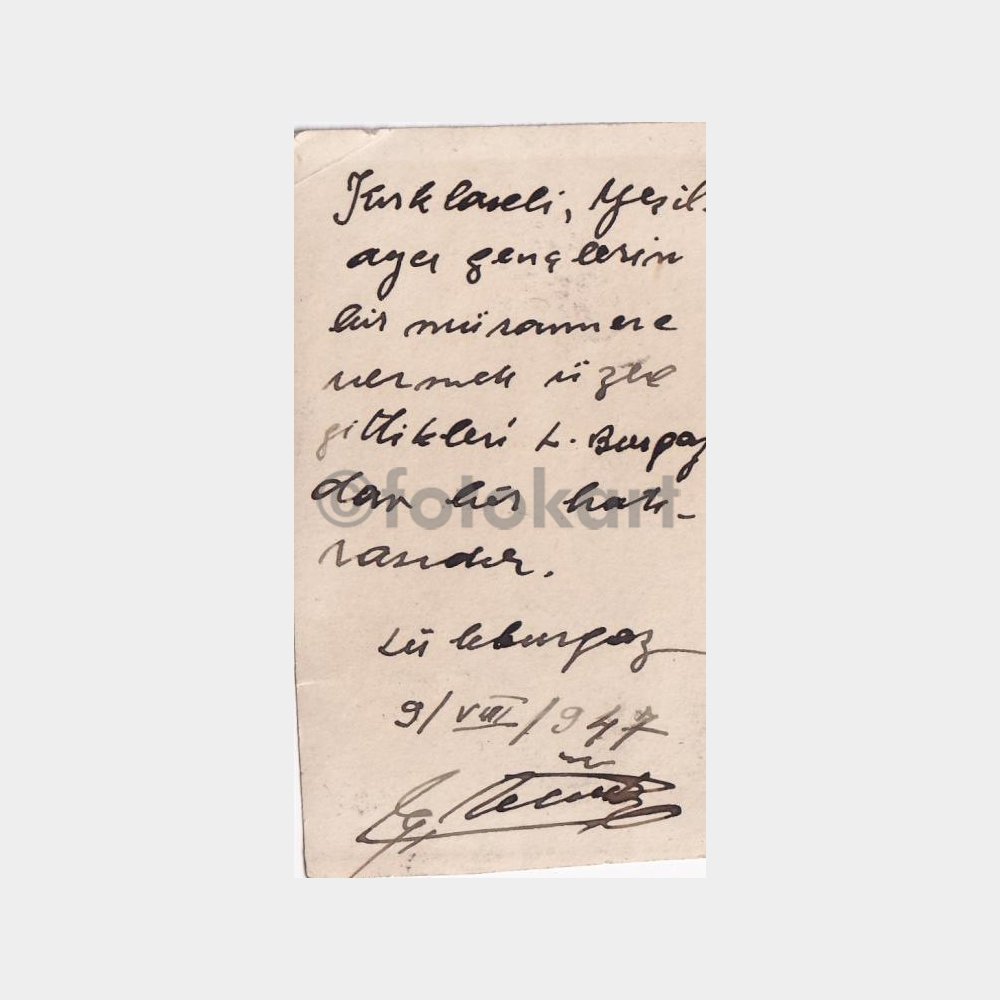 Kırklareli, Yeşil-
aycı gençlerin
bir müsamere
vermek üzre
gittikleri L. Burgaz
dan bir hatı-
rasıdır.
Lüleburgaz
9/VIII/947
©fotokart